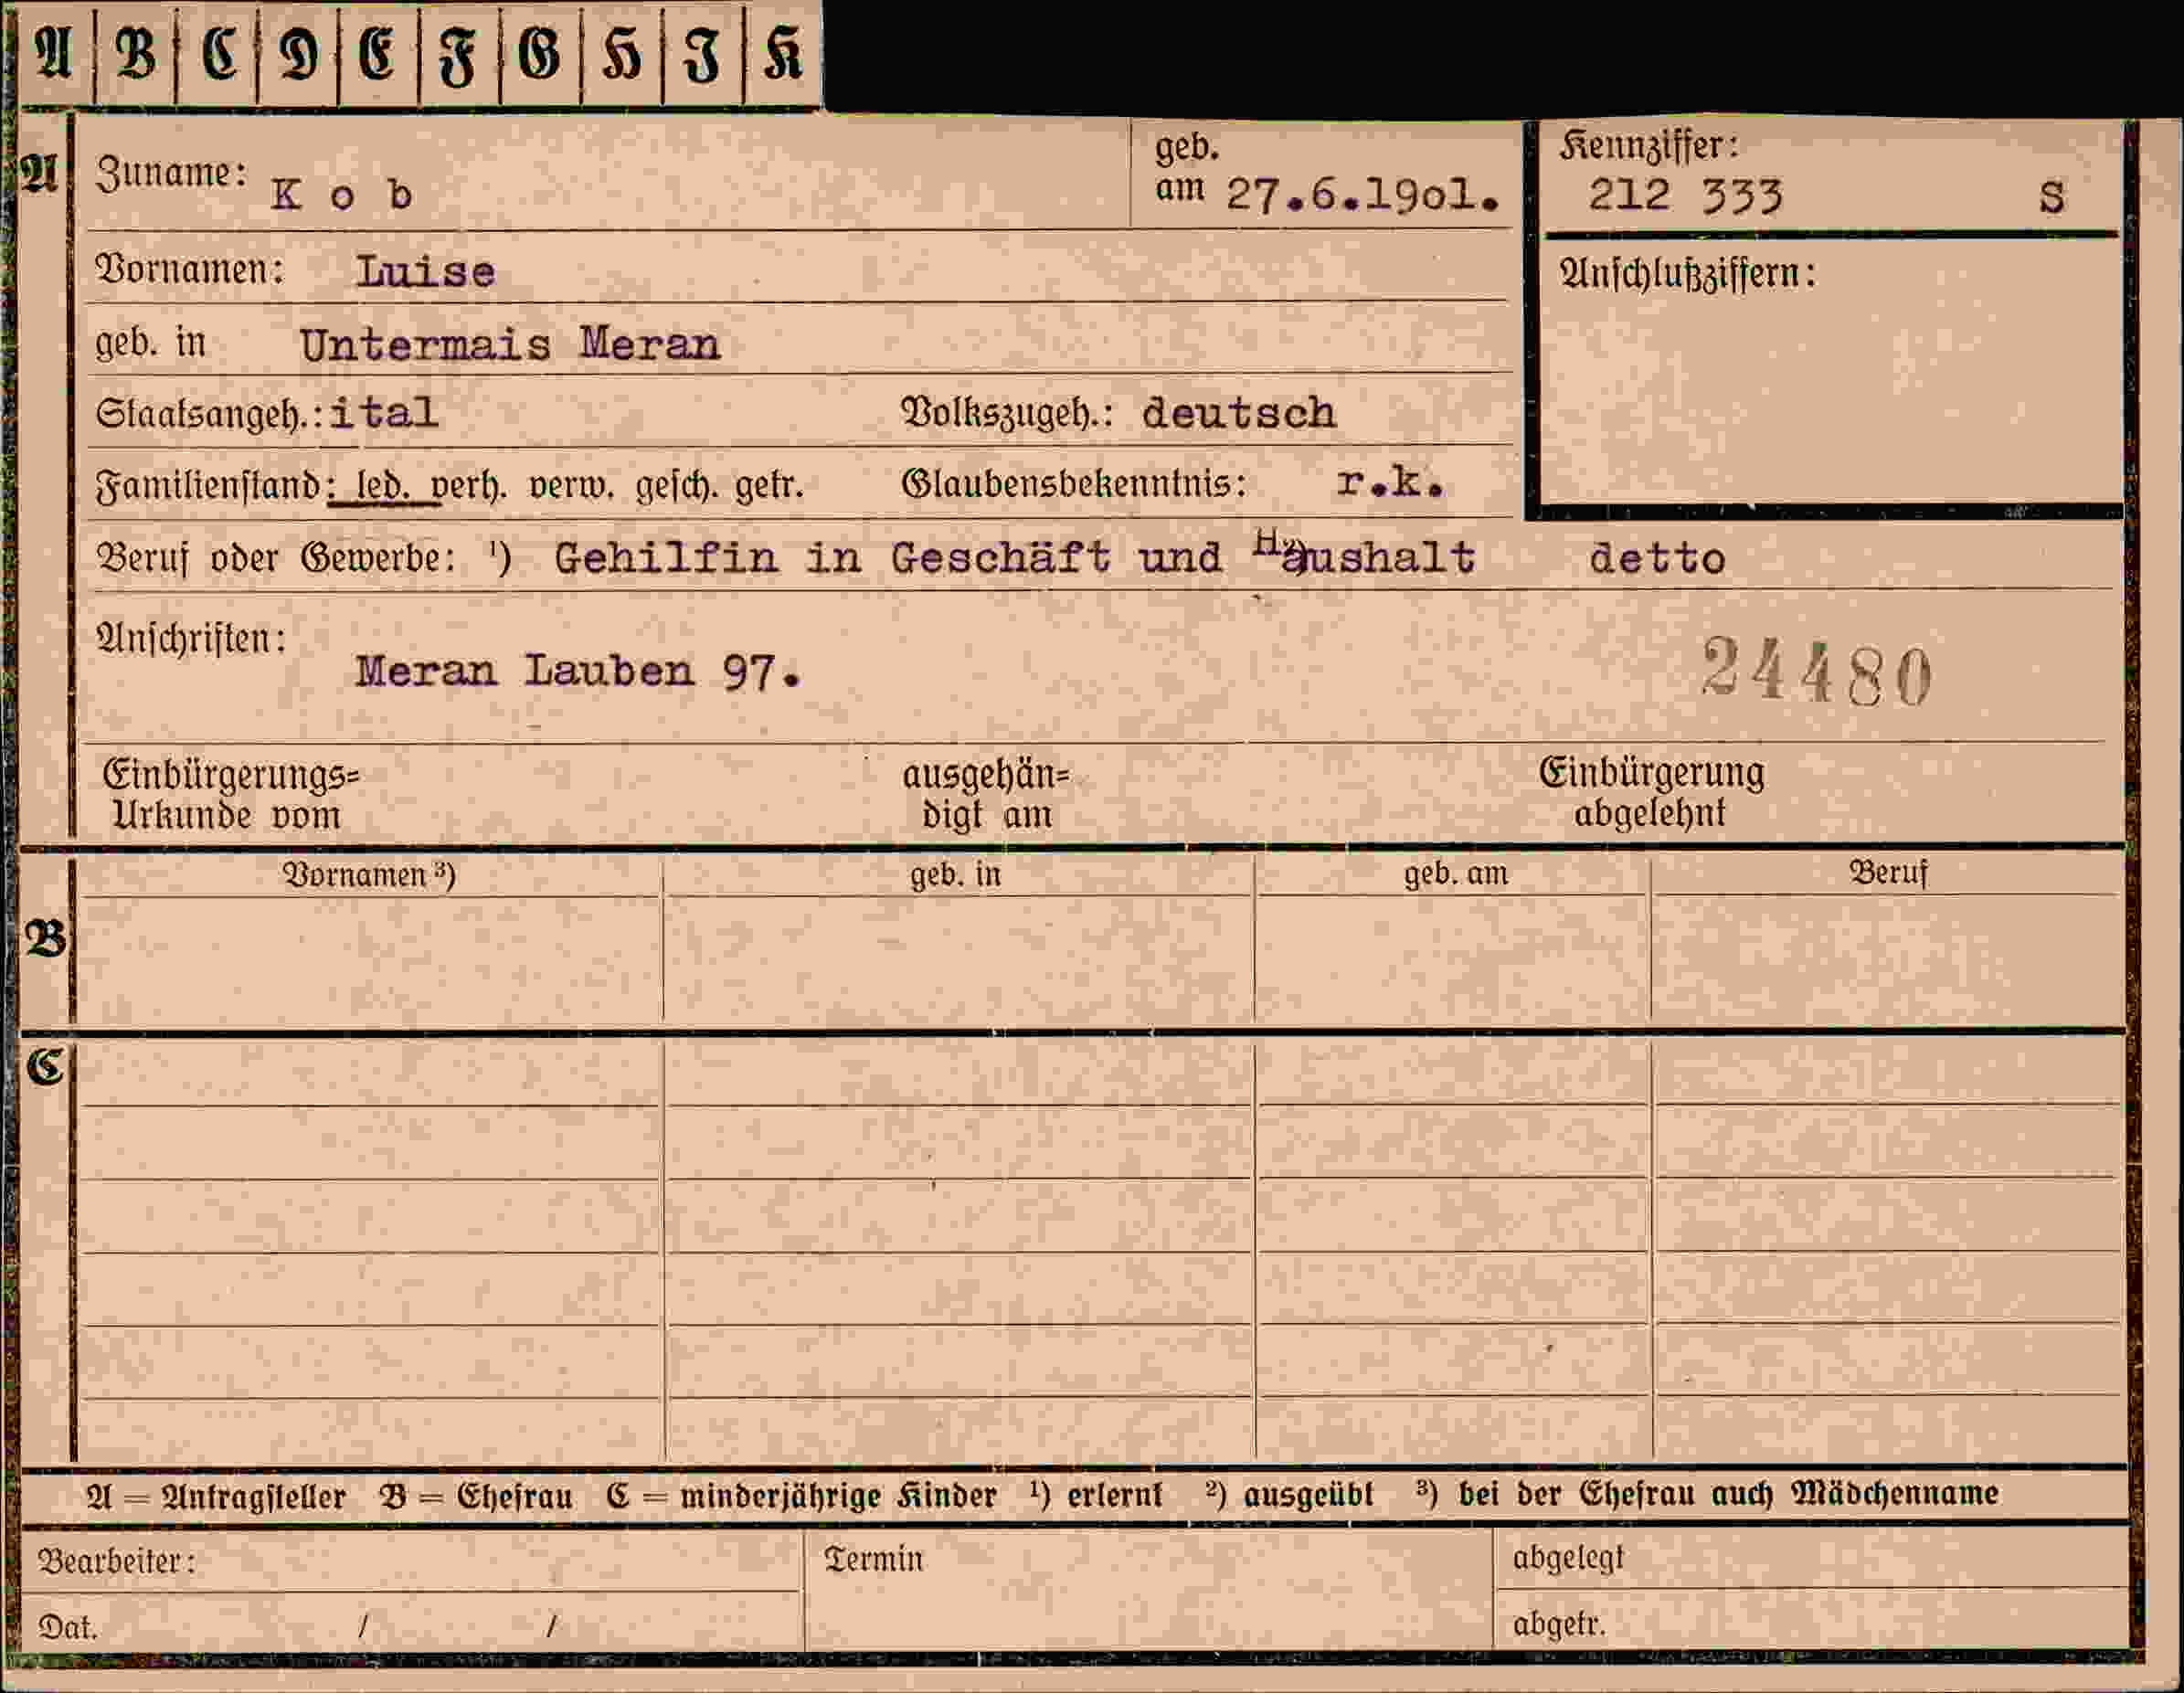 A B C D E F G H J K
A Zuname: K o b geb. am 27.6.19o1. Kennziffer: 212 333 S
Vornamen: Luise Anschlußziffern:
geb. in Untermais Meran
Staatsangeh.: ital Volkszugeh.: deutsch
Familienstand: led. verh. verw. gesch. getr. Glaubensbekenntnis: r.k.
Beruf oder Gewerbe: ¹) Gehilfin in Geschäft und Haushalt detto
Anschriften:
Meran Lauben 97. 24480
Einbürgerungs= ausgehän= Einbürgerung
Urkunde vom digt am abgelehnt
Vornamen ³) geb. in geb. am Beruf
B
C
A = Antragsteller B = Ehefrau C = minderjährige Kinder ¹) erlernt ²) ausgeübt ³) bei der Ehefrau auch Mädchenname
Bearbeiter: Termin abgelegt
Dat. / / abgetr.